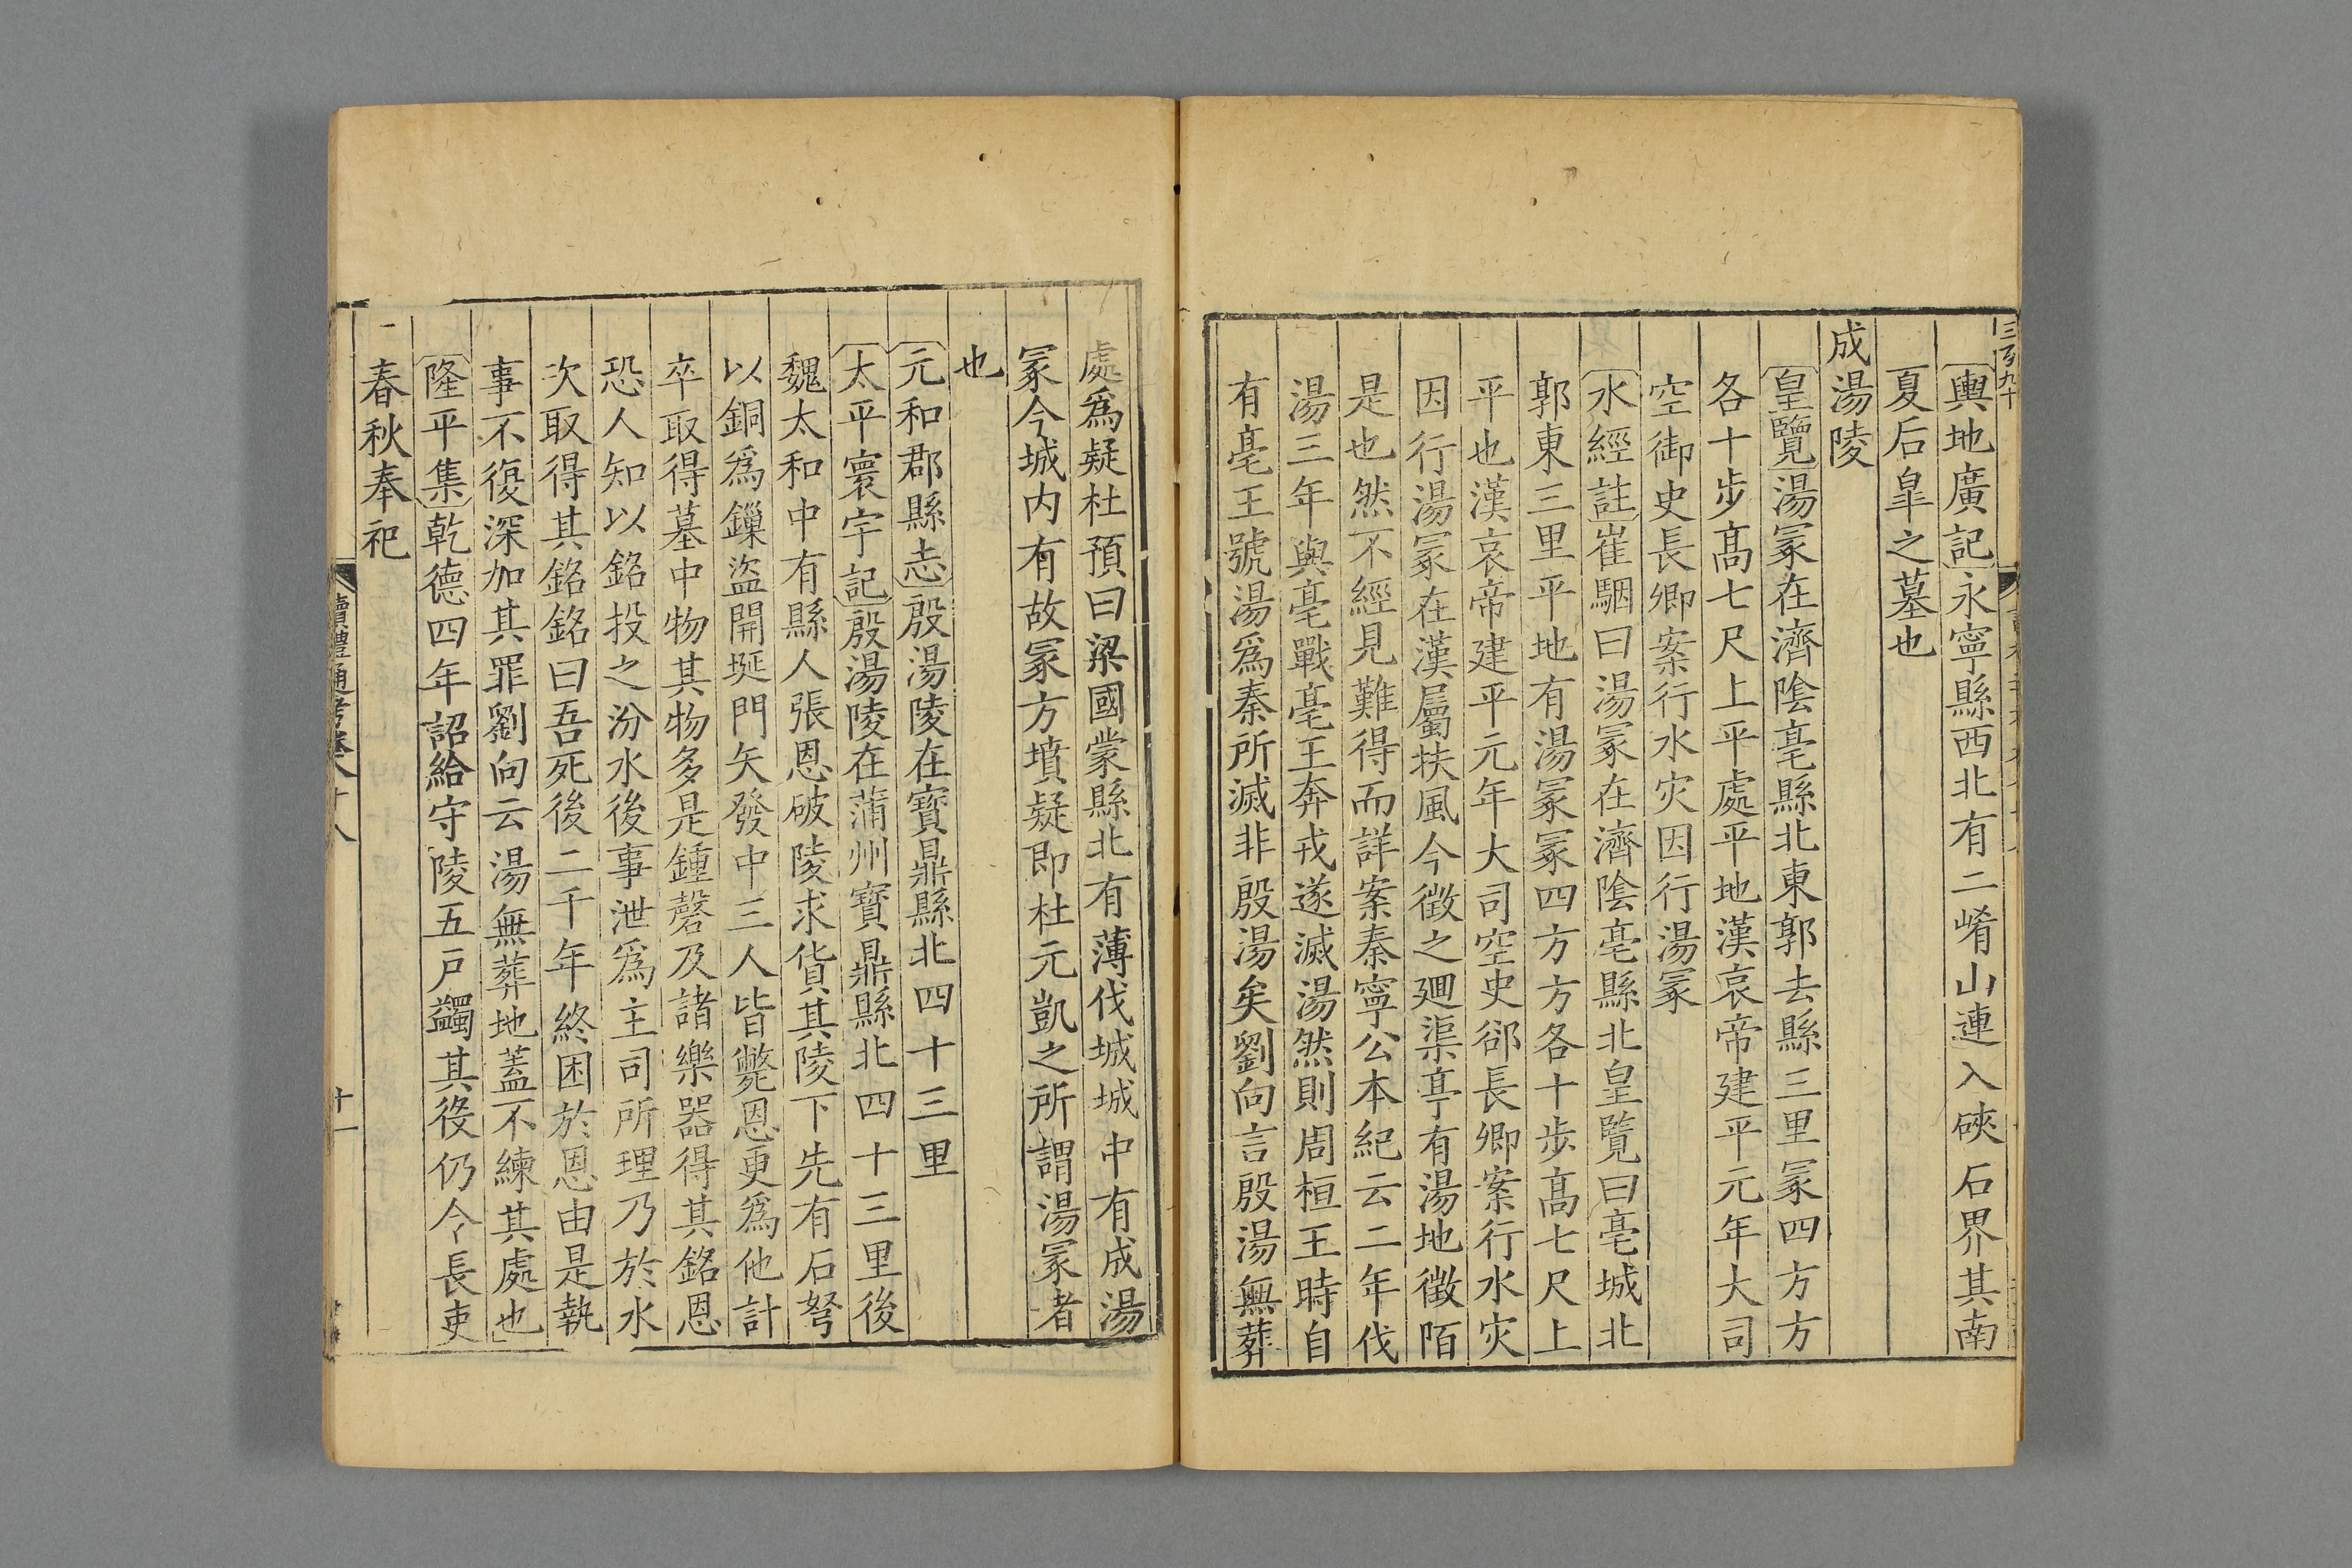 輿地廣記永寧縣西北有二崤山連入硤石界其南
夏后皐之墓也
成湯陵
皇覽湯冡在濟陰亳縣北東郭去縣三里冡四方方
各十步髙七尺上平處平地漢哀帝建平元年大司
空御史長卿案行水灾因行湯冡
水經註崔駰曰湯冡在濟陰亳縣北皇覽曰亳城北
郭東三里平地有湯冡冡四方方各十步髙七尺上
平也漢哀帝建平元年大司空史郤長卿案行水灾
因行湯冡在漢屬扶風今徵之廻渠亭有湯地徵陌
是也然不經見難得而詳案秦寧公本紀云二年伐
湯三年與亳戰亳王奔戎遂滅湯然則周桓王時自
有亳王號湯爲秦所滅非殷湯矣劉向言殷湯無葬
處爲疑杜預曰梁國蒙縣北有薄伐城城中有成湯
冡今城内有故冡方墳疑即杜元凱之所謂湯冡者
也
元和郡縣志殷湯陵在寳鼎縣北四十三里
太平寰宇記殷湯陵在蒲州寳鼎縣北四十三里後
魏太和中有縣人張恩破陵求貨其陵下先有石弩
以銅爲鏁盜開埏門矢發中三人皆斃恩更爲他計
卒取得墓中物其物多是鍾磬及諸樂器得其銘恩
恐人知以銘投之汾水後事泄爲主司所理乃於水
次取得其銘銘曰吾死後二千年終困於恩由是執
事不復深加其罪劉向云湯無葬地蓋不練其處也
隆平集乾德四年詔給守陵五戸蠲其役仍令長吏
春秋奉祀
讀禮通考卷八十八
十一